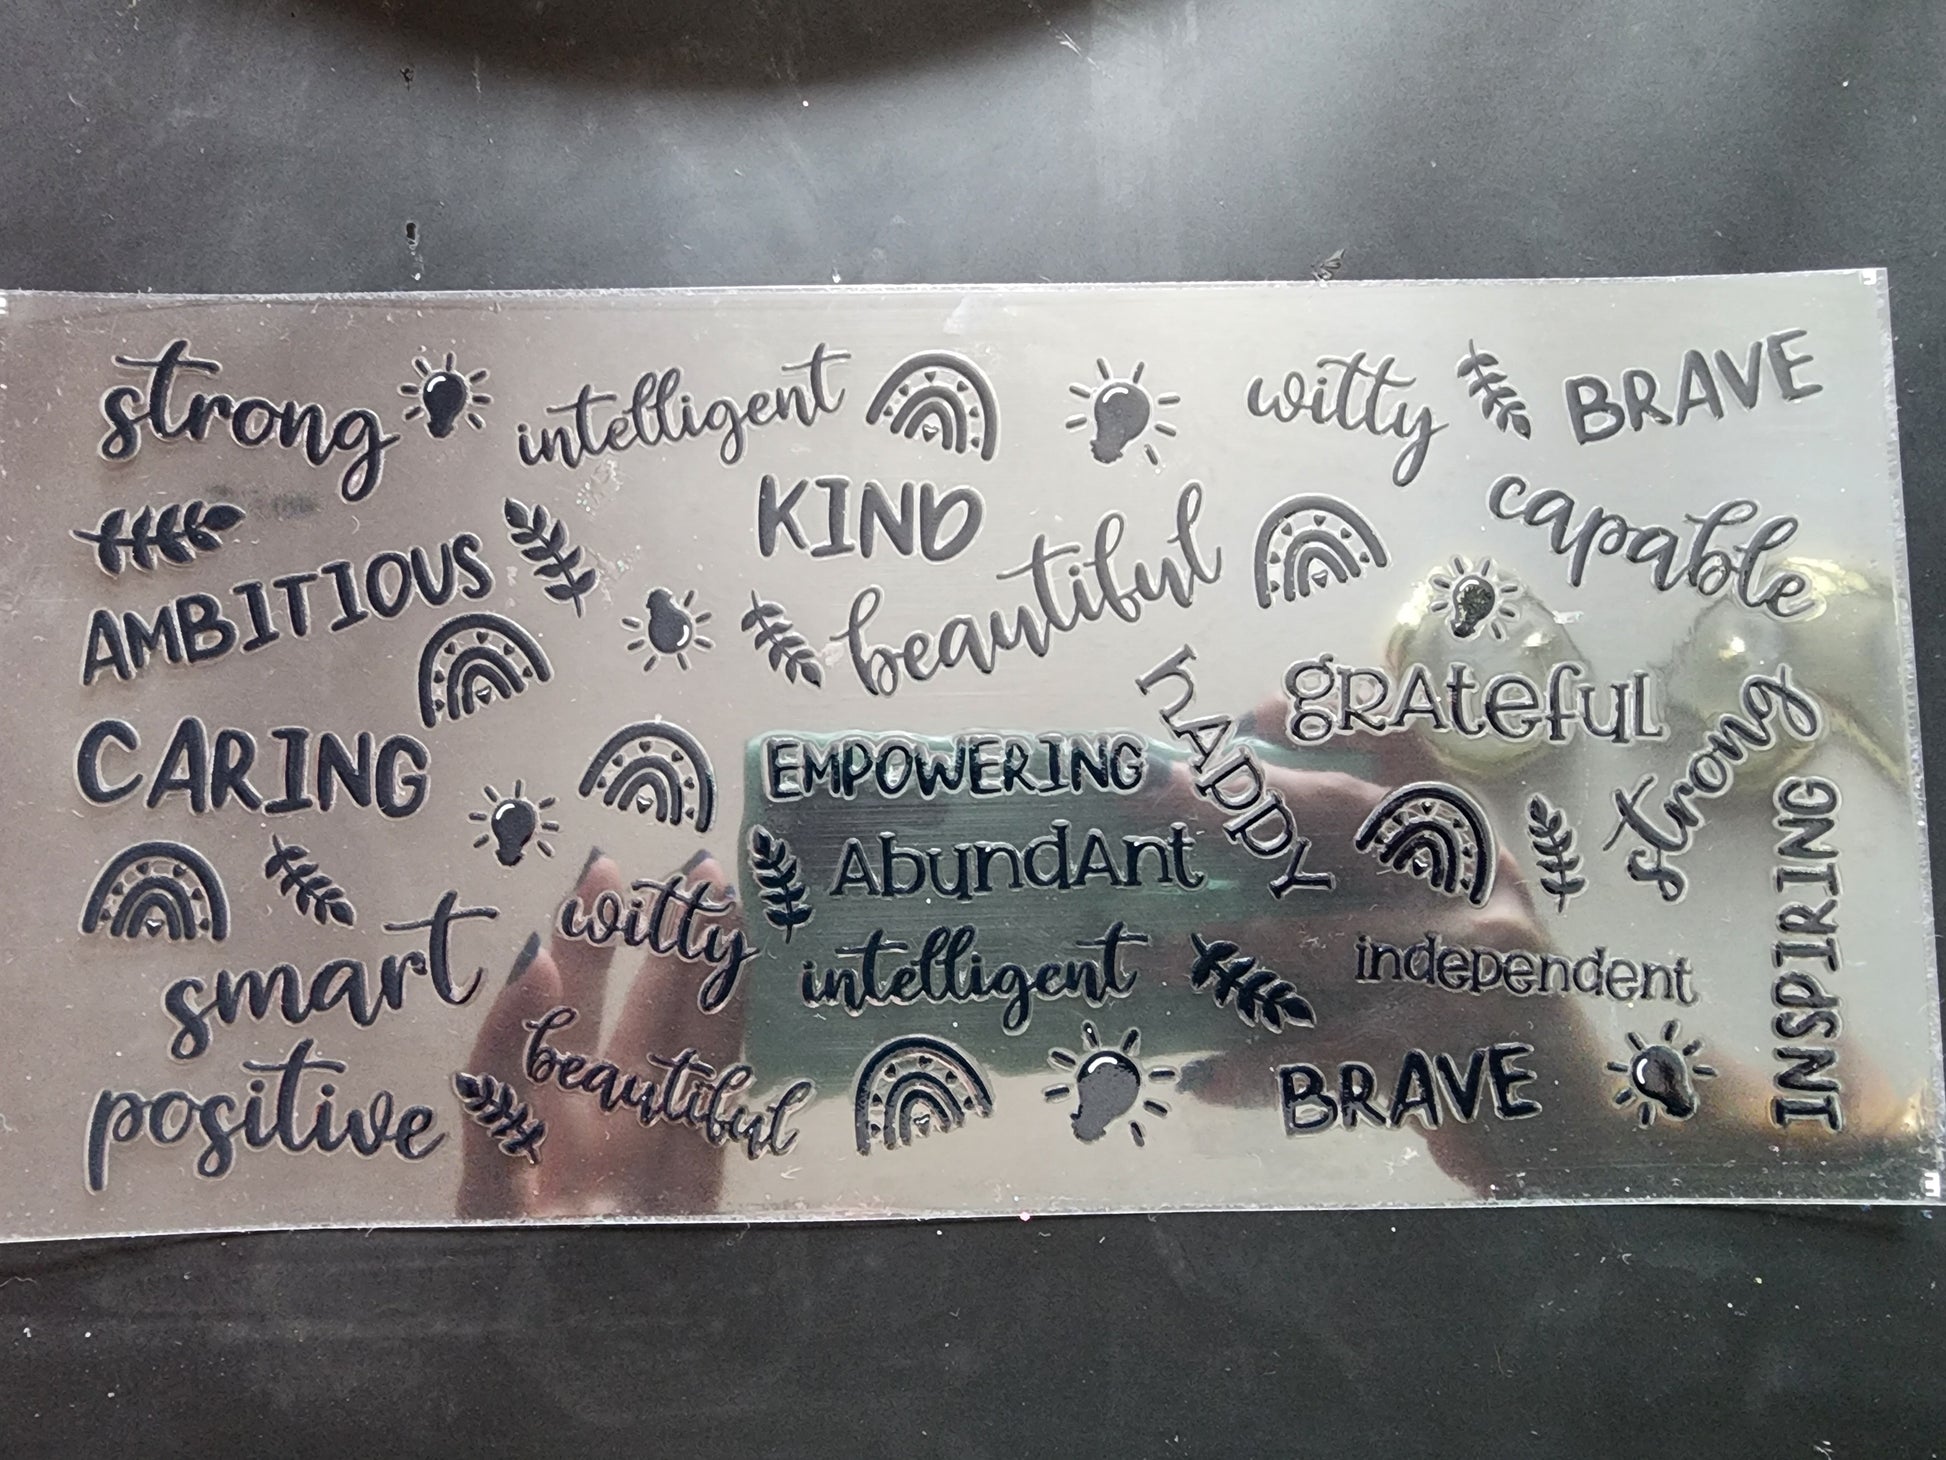 strong
intelligent
witty
BRAVE
KIND
capable
AMBITIOUS
beautiful
grAteful
hAppy
strong
CARING
EMPOWERING
AbundAnt
INSPIRING
smart
witty
intelligent
independent
positive
beautiful
BRAVE